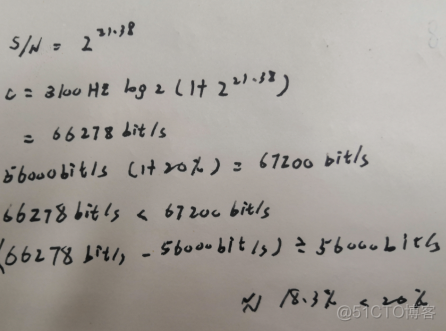 S/N = 2^21.38
C = 3100 HZ log 2 (1+ 2^21.38)
= 66278 bit/s
56000 bit/s (1+20%) = 67200 bit/s
66278 bit/s < 67200 bit/s
(66278 bit/s - 56000 bit/s) ÷ 56000 bit/s
≈ 18.3% < 20%
@51CTO博客